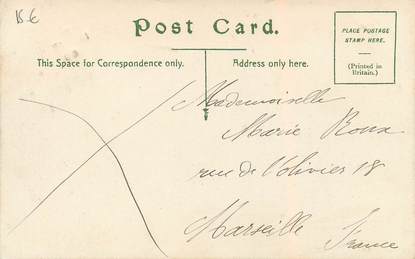 15 €
Post Card.
PLACE POSTAGE
STAMP HERE.
(Printed in
Britain.)
This Space for Correspondence only.
Address only here.
Mademoiselle
Marie Roux
rue de l'olivier 18
Marseille
France